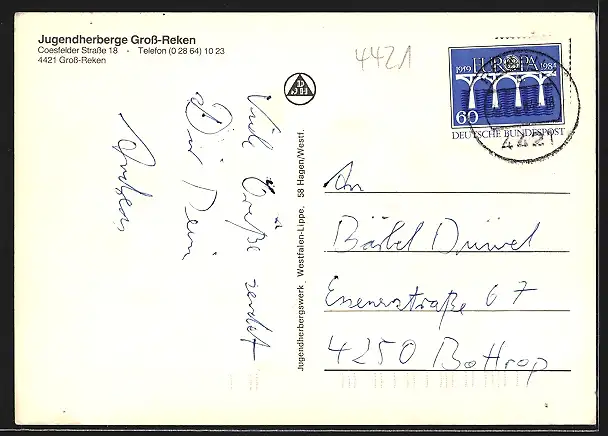 Jugendherberge Groß-Reken
Coesfelder Straße 18 - Telefon (0 28 64) 10 23
4421 Groß-Reken
4421
1949 EUROPA 1984
60
DEUTSCHE BUNDESPOST
4421
DJH
Viele Grüße sendet
Dir Dein
Andreas
Jugendherbergswerk, Westfalen-Lippe, 58 Hagen/Westf.
An
Bärbel Düwel
Essenerstraße 67
4250 Bottrop